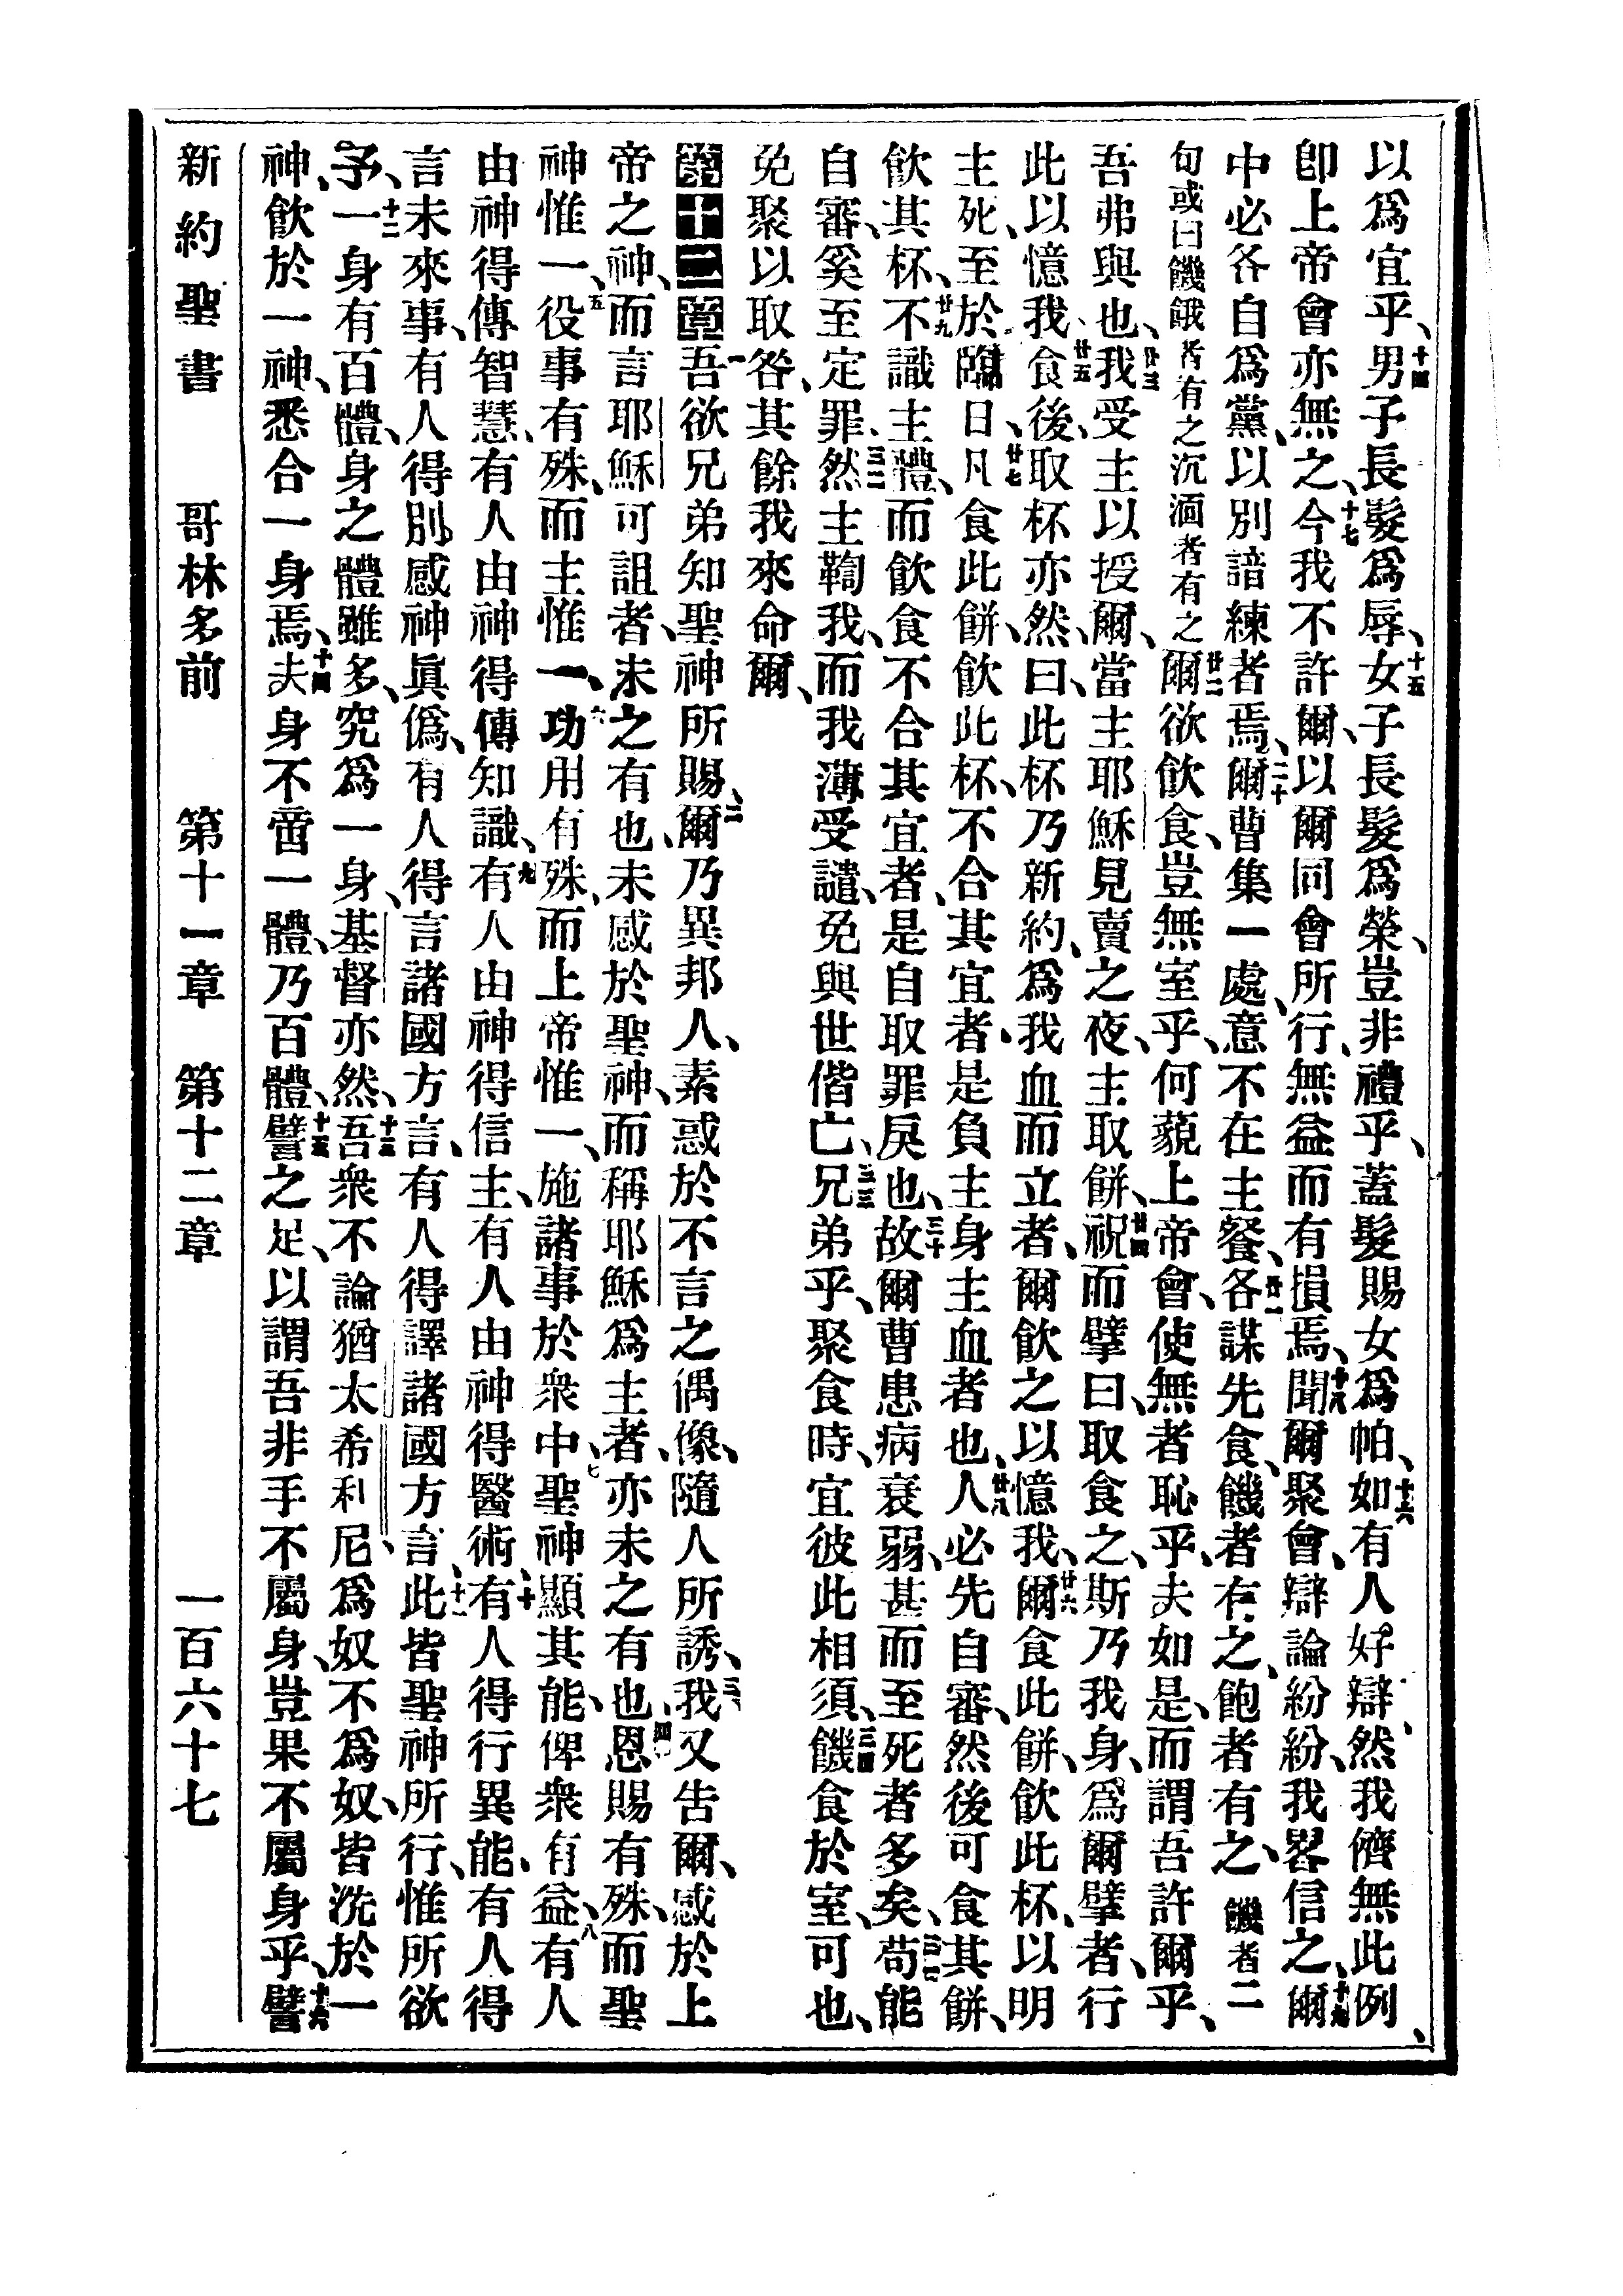 以爲宜乎、十四男子長髮爲辱、十五女子長髮爲榮、豈非禮乎、蓋髮賜女爲帕、十六如有人好辯、然我儕無此例、
卽上帝會亦無之、十七今我不許爾、以爾同會所行、無益而有損焉、十八聞爾聚會、辯論紛紛、我畧信之、十九爾
中必各自爲黨、以別諳練者焉、二十爾曹集一處、意不在主餐、廿一各謀先食、饑者有之、飽者有之、饑者二
句或曰饑餓者有之沉湎者有之廿二爾欲飲食、豈無室乎、何藐上帝會、使無者恥乎、夫如是、而謂吾許爾乎、
吾弗與也、廿三我受主以授爾、當主耶穌見賣之夜、主取餅、廿四祝而擘曰、取食之、斯乃我身、爲爾擘者、行
此以憶我、廿五食後、取杯亦然、曰、此杯乃新約、爲我血而立者、爾飲之以憶我、廿六爾食此餅、飲此杯、以明
主死、至於臨日、廿七凡食此餅、飲此杯、不合其宜者、是負主身主血者也、廿八人必先自審、然後可食其餅、
飲其杯、廿九不識主體、而飲食不合其宜者、是自取罪戾也、三十故爾曹患病衰弱、甚而至死者多矣、三一苟能
自審、奚至定罪、三二然主鞫我、而我薄受譴、免與世偕亡、三三兄弟乎、聚食時、宜彼此相須、三四饑食於室、可也、
免聚以取咎、其餘我來命爾、
第十二章一吾欲兄弟知聖神所賜、二爾乃異邦人、素惑於不言之偶像、隨人所誘、三我又告爾、感於上
帝之神、而言耶穌可詛者、未之有也、未感於聖神、而稱耶穌爲主者、亦未之有也、四恩賜有殊、而聖
神惟一、五役事有殊、而主惟一、六功用有殊、而上帝惟一、施諸事於衆中、七聖神顯其能、俾衆有益、八有人
由神得傳智慧、有人由神得傳知識、九有人由神得信主、有人由神得醫術、十有人得行異能、有人得
言未來事、有人得別感神眞僞、有人得言諸國方言、有人得譯諸國方言、十一此皆聖神所行、惟所欲
予、十二一身有百體、身之體雖多、究爲一身、基督亦然、十三吾衆不論猶太希利尼、爲奴不爲奴、皆洗於一
神、飲於一神、悉合一身焉、十四夫身不啻一體、乃百體、十五譬之足、以謂吾非手不屬身、豈果不屬身乎、十六譬
新約聖書　哥林多前　第十一章　第十二章　一百六十七